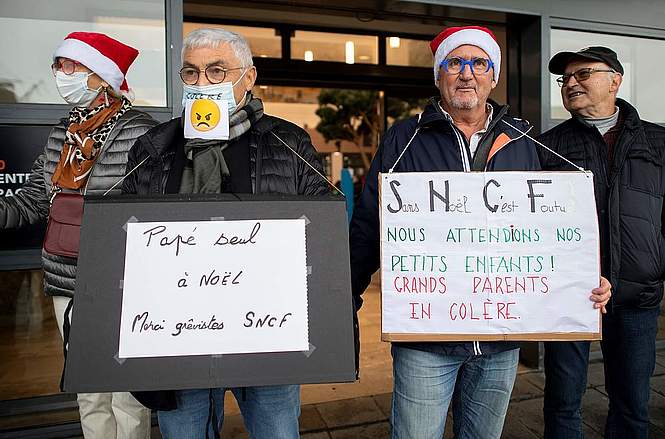 Papé seul
à NOËL
Merci grévistes SNCF
Sans Noël C'est Foutu
NOUS ATTENDIONS NOS
PETITS ENFANTS!
GRANDS PARENTS
IN COLÈRE.
COLERE